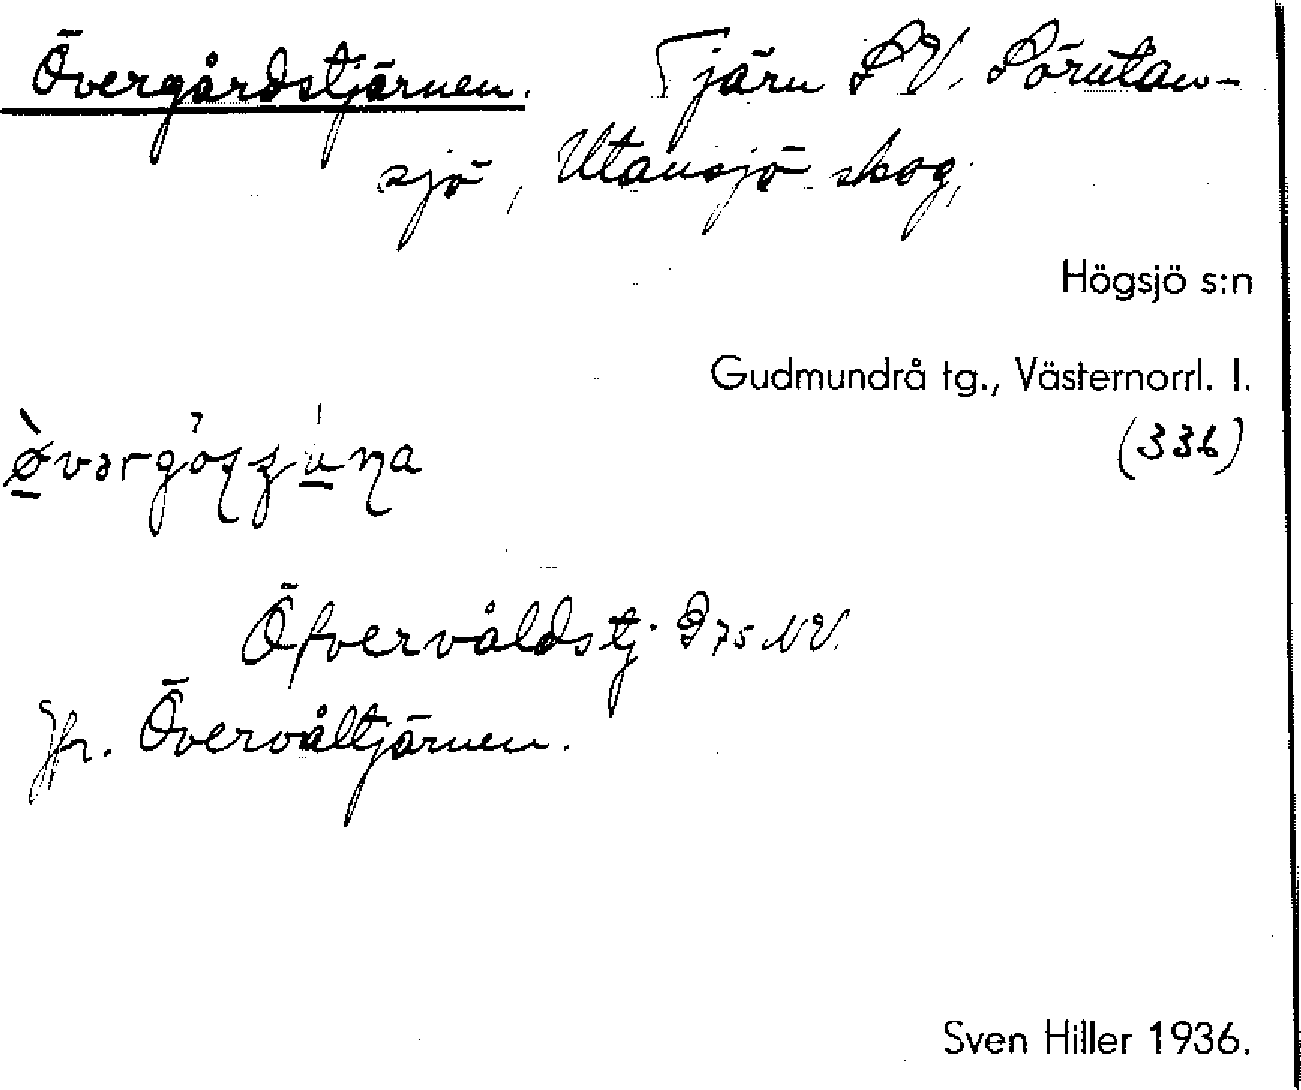 Övergårdstjärnen. Tjärn SV. Sörutan-
sjö, Utansjö skog,
Högsjö s:n
Gudmundrå tg., Västernorrl. l.
(336)
Öfvervåldstj. G 75 NV.
Jfr. Övervåltjärnen.
Sven Hiller 1936.